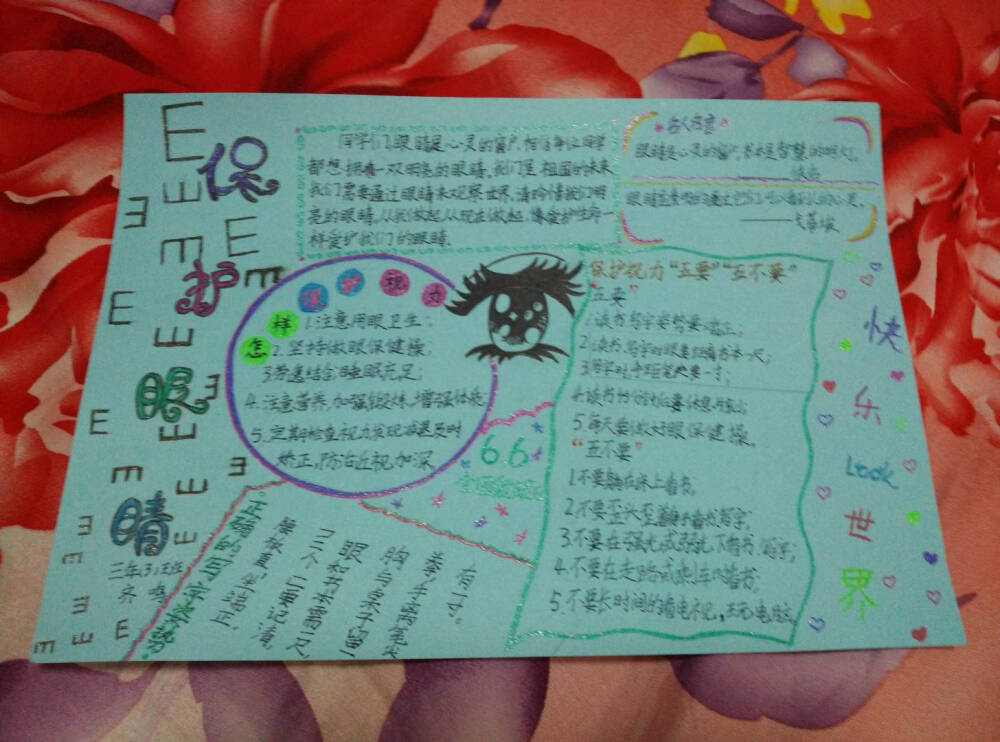 保护眼睛
三年(3)班
齐鸣
E E E E E E E E E E E E E E E E E E E E
同学们,眼睛是心灵的窗户,相信每位同学
都想拥有一双明亮的眼睛,我们是祖国的未来
我们需要通过眼睛来观察世界,请珍惜我们明
亮的眼睛,从我做起,从现在做起,像爱护生命一
样爱护我们的眼睛。
名人名言
眼睛是心灵的窗户,
怎样保护视力
1.注意用眼卫生;
2.坚持做眼保健操,
3.劳逸结合,睡眠充足;
4.注意营养,加强锻炼,增强体质
5.定期检查视力发现减退及时
矫正,防治近视加深
66
全国爱眼日
保护视力“五要”“五不要”
“五要”
1.读书写字姿势要端正;
2.读书、写字时眼要离书本一尺;
3.写字时手距笔尖要一寸;
5.每天要做好眼保健操。
“五不要”
1.不要躺在床上看书,
2.不要歪头歪着身子看书写字,
3.不要在强光或弱光下看书、写字;
4.不要在走路或乘车时看书;
5.不要长时间的看电视、玩电脑
正确的写字姿势:
腰板直,坐端正,
三个一要记清,
眼和书本要一尺,
胸与桌子留一
拳,手离笔尖
有一寸。
快乐Look世界